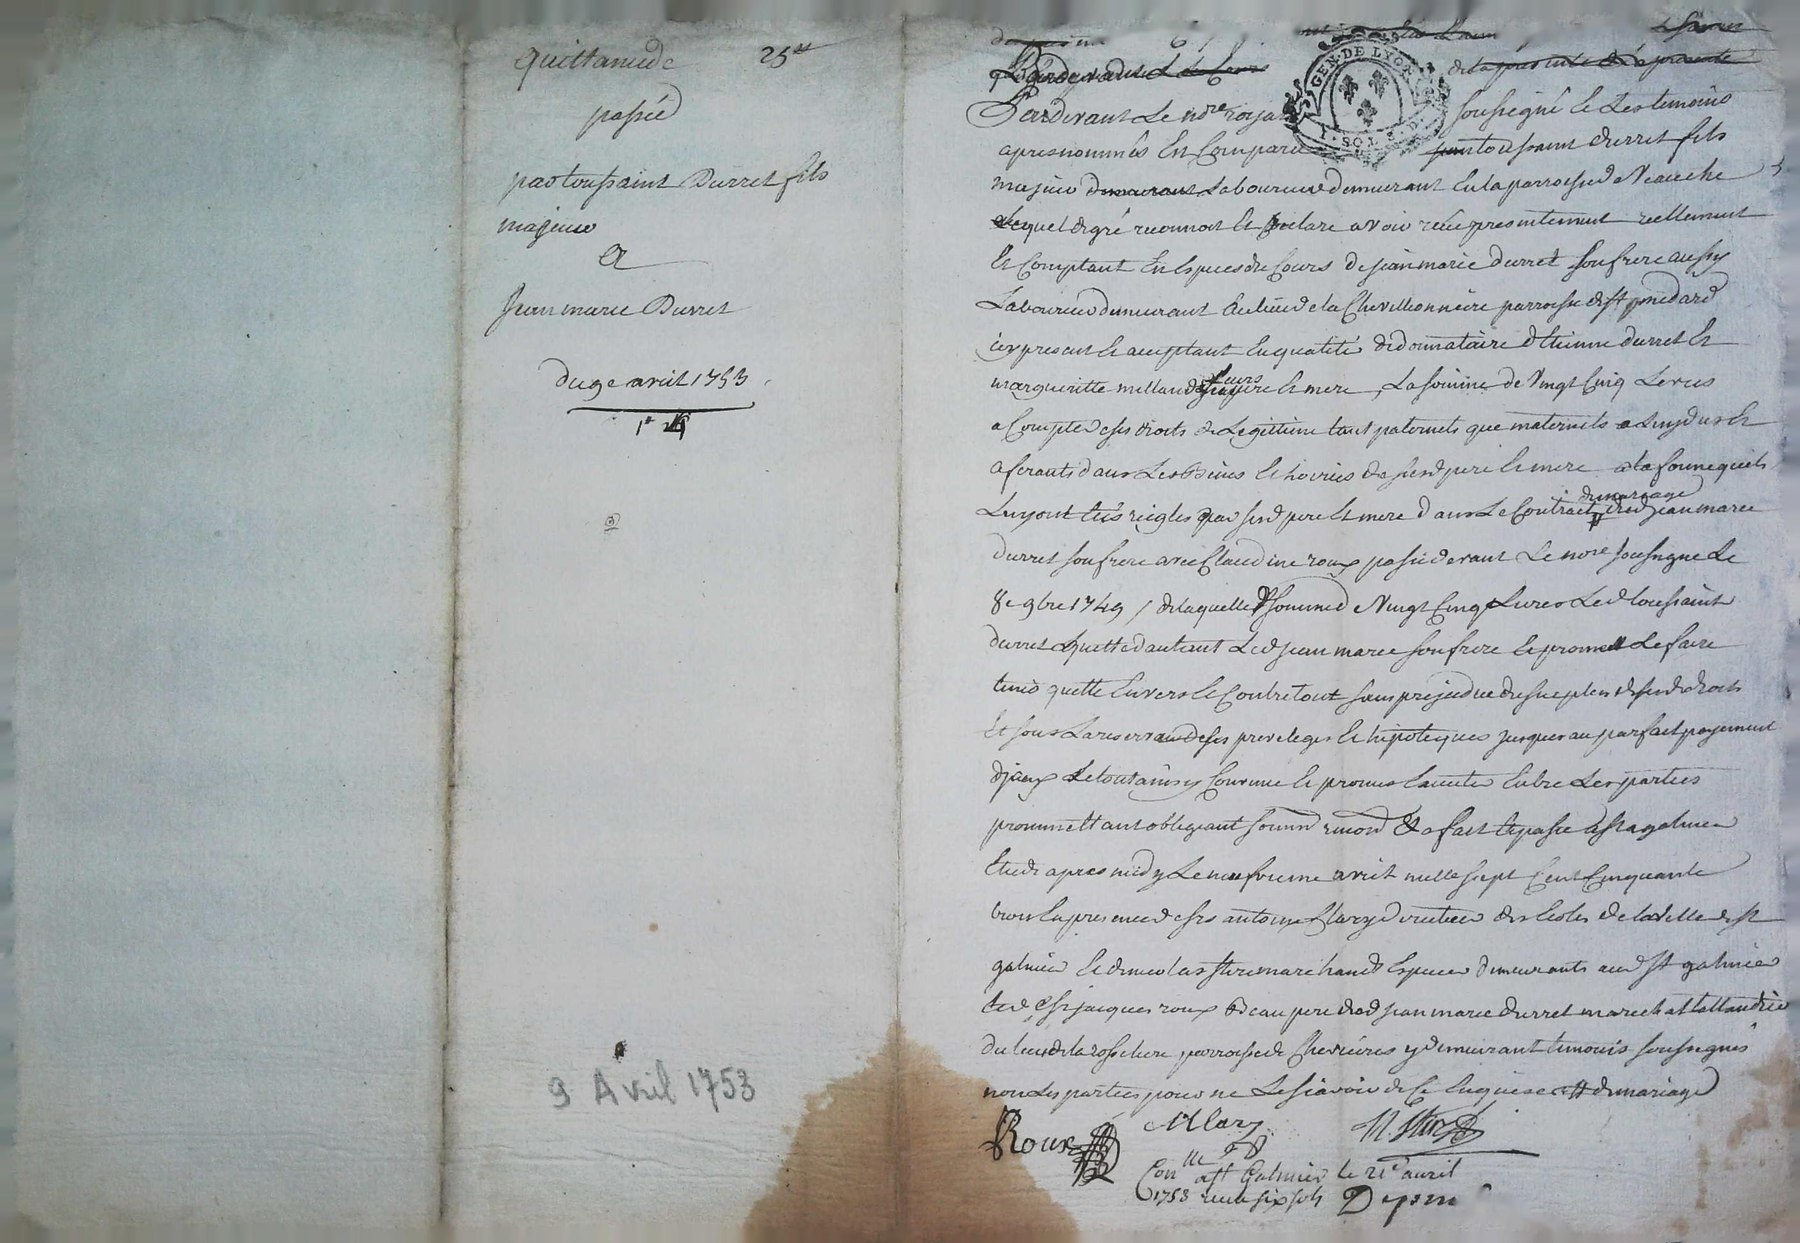 quittance de 25ᵗᵗ
passée
par toussaint Durret fils
majeur
a
Jean marie Durret
du 9e avril 1753
9 Avril 1753
GEN. DE LYON
Pardevant Le nore royal soussigné et Les temoins
apres nommés Est Comparu toussaint durret fils
majeur demeurant Laboureur demeurant En la parroisse de Veauche
Lequel de gré reconnoit Et declare avoir reçu presentement reellement
Et Comptant En Especes du Cours de jean marie durret son frere aussy
Laboureur demeurant au lieu de la Chevillionnière parroisse de st medard
icy present Et acceptant En qualité de donnataire d'Etienne durret Et
margueritte mellan leurs pere Et mere, La somme de Vingt Cinq Livres
a Compte de ses droits de Legitime tant paternels que maternels a Luy dus Et
aferants dans Les Biens Et hoiries de sesd pere Et mere a la forme quils
Luy ont Etés reiglés par sesd pere Et mere dans Le Contract de mariage dud jean marie
durret son frere avec Claudine roux passé devant Le nore soussigné Le
8e 9bre 1749 / de laquelle somme de Vingt Cinq Livres Led toussaint
durret quitte d'autant Led jean marie son frere Et promet Le faire
tenir quitte Envers Et Contre tout sans prejudice du surplus de sesd droits
Et sous La reserve de ses privileges Et hipoteques jusques au parfait payement
d'jceux Le tout ainsy Convenu Et promis Entre Les parties
promettant obligeant soumd renond &a fait Et passé a st galmier
Etude apres midy Le neufvieme avril mille sept Cent Cinquante
trois En presence de srs antoine Mary directeur des Ecoles de la Ville de st
galmier Et de nicolas marchand Epicier demeurants aud st galmier
Et de sr jacques roux Beau pere dud jean marie durret marechal tallandier
du lieu de la parroisse de Chevrieres y demeurant temoins soussignés
non Les parties pour ne Le sçavoir de Ce Enquises de mariage
Roux Mary N.
Conlle a st Galmier le 21e avril
1753 reçu six sols